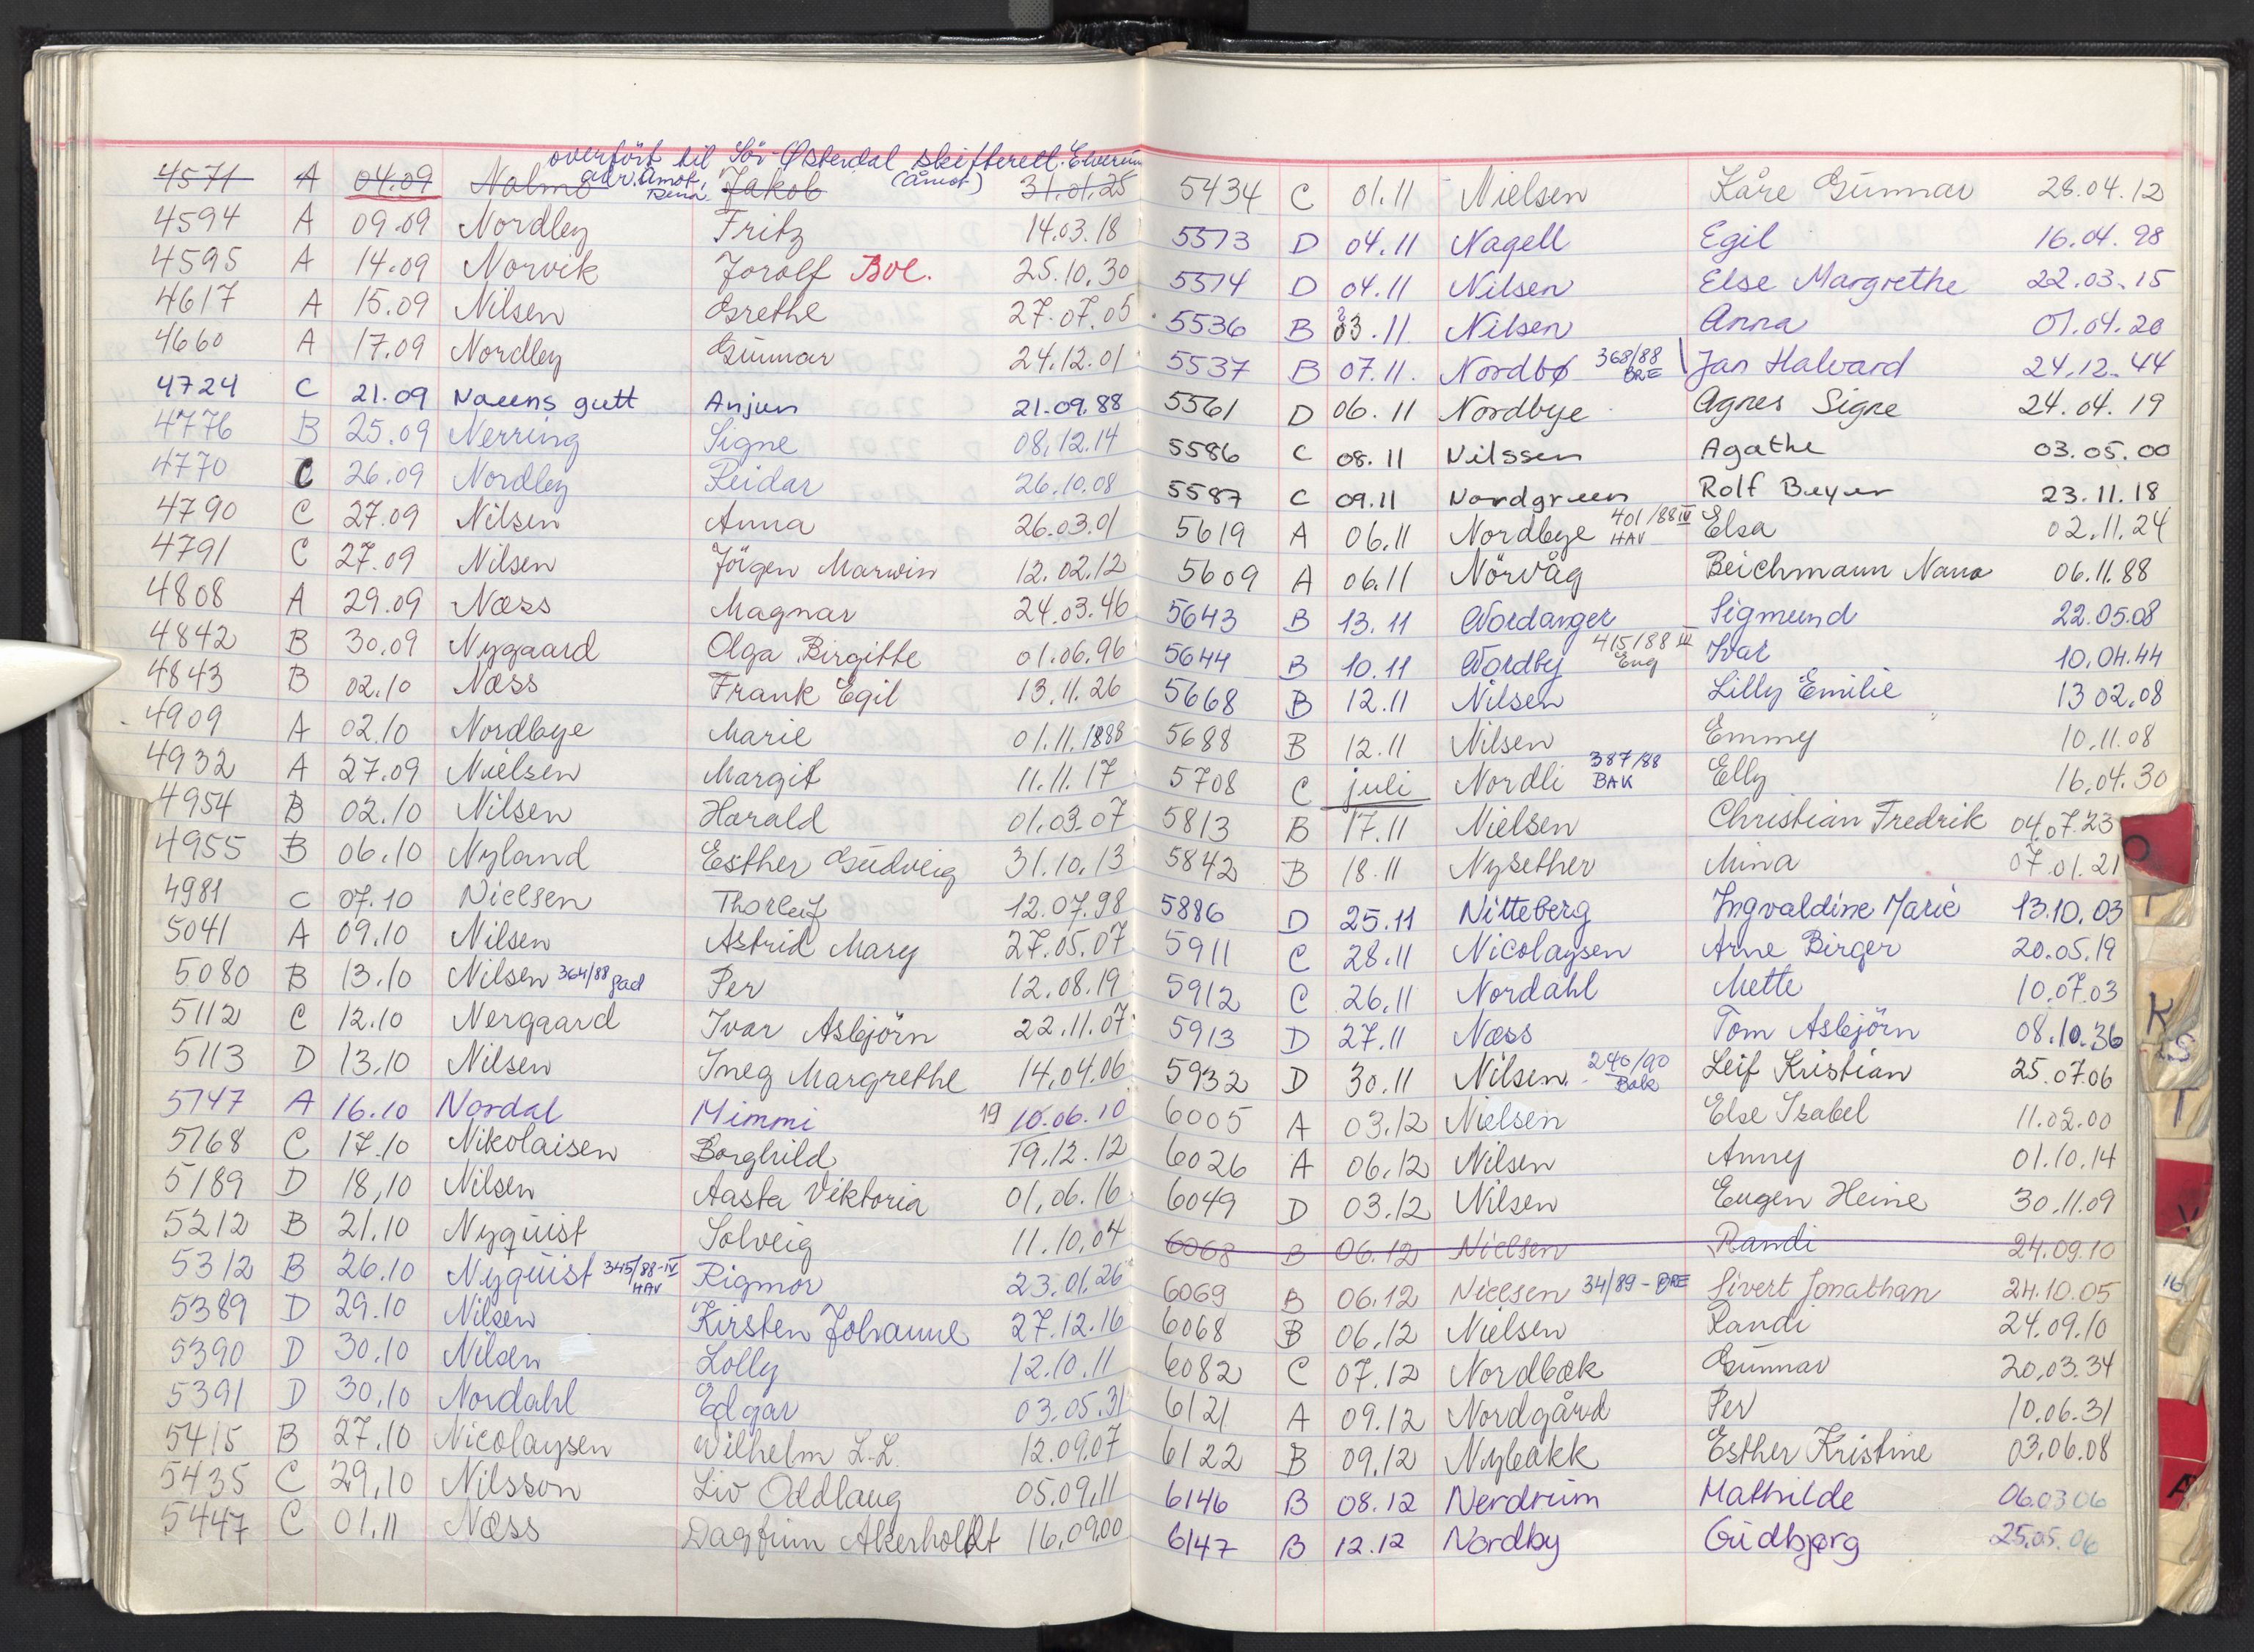 overført til Sør-Østerdal skifterett. Elverum
adr. Åmot, Rena. (Åmot)
4571 A 04.09 Nalmo Jakob 31.01.25
4594 A 09.09 Nordley Fritz 14.03.18
4595 A 14.09 Norvik Jorolf Boe. 25.10.30
4617 A 15.09 Nilsen Grethe 27.07.05
4660 A 17.09 Nordley Gunnar 24.12.01
4724 C 21.09 Naeens gutt Anjun 21.09.88
4776 B 25.09 Nerring Signe 08.12.14
4770 C 26.09 Nordley Reidar 26.10.08
4790 C 27.09 Nilsen Anna 26.03.01
4791 C 27.09 Nilsen Jörgen Marwin 12.02.12
4808 A 29.09 Næss Magnar 24.03.46
4842 B 30.09 Nygaard Olga Birgitte 01.06.96
4843 B 02.10 Næss Frank Egil 13.11.26
4909 A 02.10 Nordbye Marie 01.11.1888
4932 A 27.09 Nielsen Margit 11.11.17
4954 B 02.10 Nilsen Harald 01.03.07
4955 B 06.10 Nyland Esther Gudveig 31.10.13
4981 C 07.10 Nielsen Thorleif 12.07.98
5041 A 09.10 Nilsen Astrid Mary 27.05.07
5080 B 13.10 Nilsen 364/88 gad Per 12.08.19
5112 C 12.10 Nergaard Ivar Asbjörn 22.11.07
5113 D 13.10 Nilsen Ineg Margrethe 14.04.06
5147 A 16.10 Nordal Mimmi 19 10.06.10
5168 C 17.10 Nikolaisen Borghild 19.12.12
5189 D 18.10 Nilsen Aasta Viktoria 01.06.16
5212 B 21.10 Nyquist Solveig 11.10.04
5312 B 26.10 Nyquist 345/88-IV HAV Rigmor 23.01.26
5389 D 29.10 Nilsen Kirsten Johanne 27.12.16
5390 D 30.10 Nilsen Lolly 12.10.11
5391 D 30.10 Nordahl Edgar 03.05.31
5415 B 27.10 Nicolaysen Wilhelm L.L. 12.09.07
5435 C 29.10 Nilsson Liv Oddlaug 05.09.11
5447 C 01.11 Næss Dagfinn Akerholdt 16.09.00
5434 C 01.11 Nielsen Kåre Gunnar 28.04.12
5513 D 04.11 Nagell Egil 16.04.98
5514 D 04.11 Nilsen Else Margrethe 22.03.15
5536 B 03.11 Nilsen Anna 01.04.20
5537 B 07.11. Nordbø 368/88 BRE Jan Halvard 24.12.44
5561 D 06.11 Nordbye Agnes Signe 24.04.19
5586 C 08.11 Nilssen Agathe 03.05.00
5587 C 09.11 Nordgreen Rolf Beyer 23.11.18
5619 A 06.11 Nordbye 401/88 IV HAV Elsa 02.11.24
5609 A 06.11 Nörvåg Beichmann Nana 06.11.88
5643 B 13.11 Nordanger Sigmund 22.05.08
5644 B 10.11 Nordby 415/88 III Eng Ivar 10.04.44
5668 B 12.11 Nilsen Lilly Emilie 13 02.08
5688 B 12.11 Nilsen Emmy 10.11.08
5708 C juli Nordli 387/88 BAK Elly 16.04.30
5813 B 17.11 Nielsen Christian Fredrik 04.07.23
5842 B 18.11 Nysether Mina 07.01.21
5886 D 25.11 Nitteberg Ingvaldine Marie 13.10.03
5911 C 28.11 Nicolaysen Arne Birger 20.05.19
5912 C 26.11 Nordahl Mette 10.07.03
5913 D 27.11 Næss Tom Asbjörn 08.10.36
5932 D 30.11 Nilsen 240/90 Bak Leif Kristian 25.07.06
6005 A 03.12 Nielsen Else Isabel 11.02.00
6026 A 06.12 Nilsen Anny 01.10.14
6049 D 03.12 Nilsen Eugen Heine 30.11.09
6068 B 06.12 Nielsen Randi 24.09.10
6069 B 06.12 Nielsen 34/89 - BRE Sivert Jonathan 24.10.05
6068 B 06.12 Nielsen Randi 24.09.10
6082 C 07.12 Nordbæk Gunnar 20.03.34
6121 A 09.12 Nordgård Per 10.06.31
6122 B 09.12 Nybakk Esther Kristine 03.06.08
6146 B 08.12 Nerdrum Mathilde 06.03 06
6147 B 12.12 Nordby Gudbjørg 25.05.06
O
K
S
T
V
A